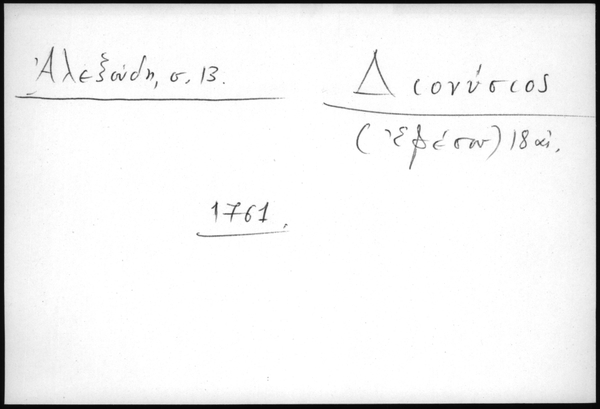 Ἀλεξούδη, σ. 13.
Διονύσιος
(Ἐφέσου) 18 αἰ.
1761.